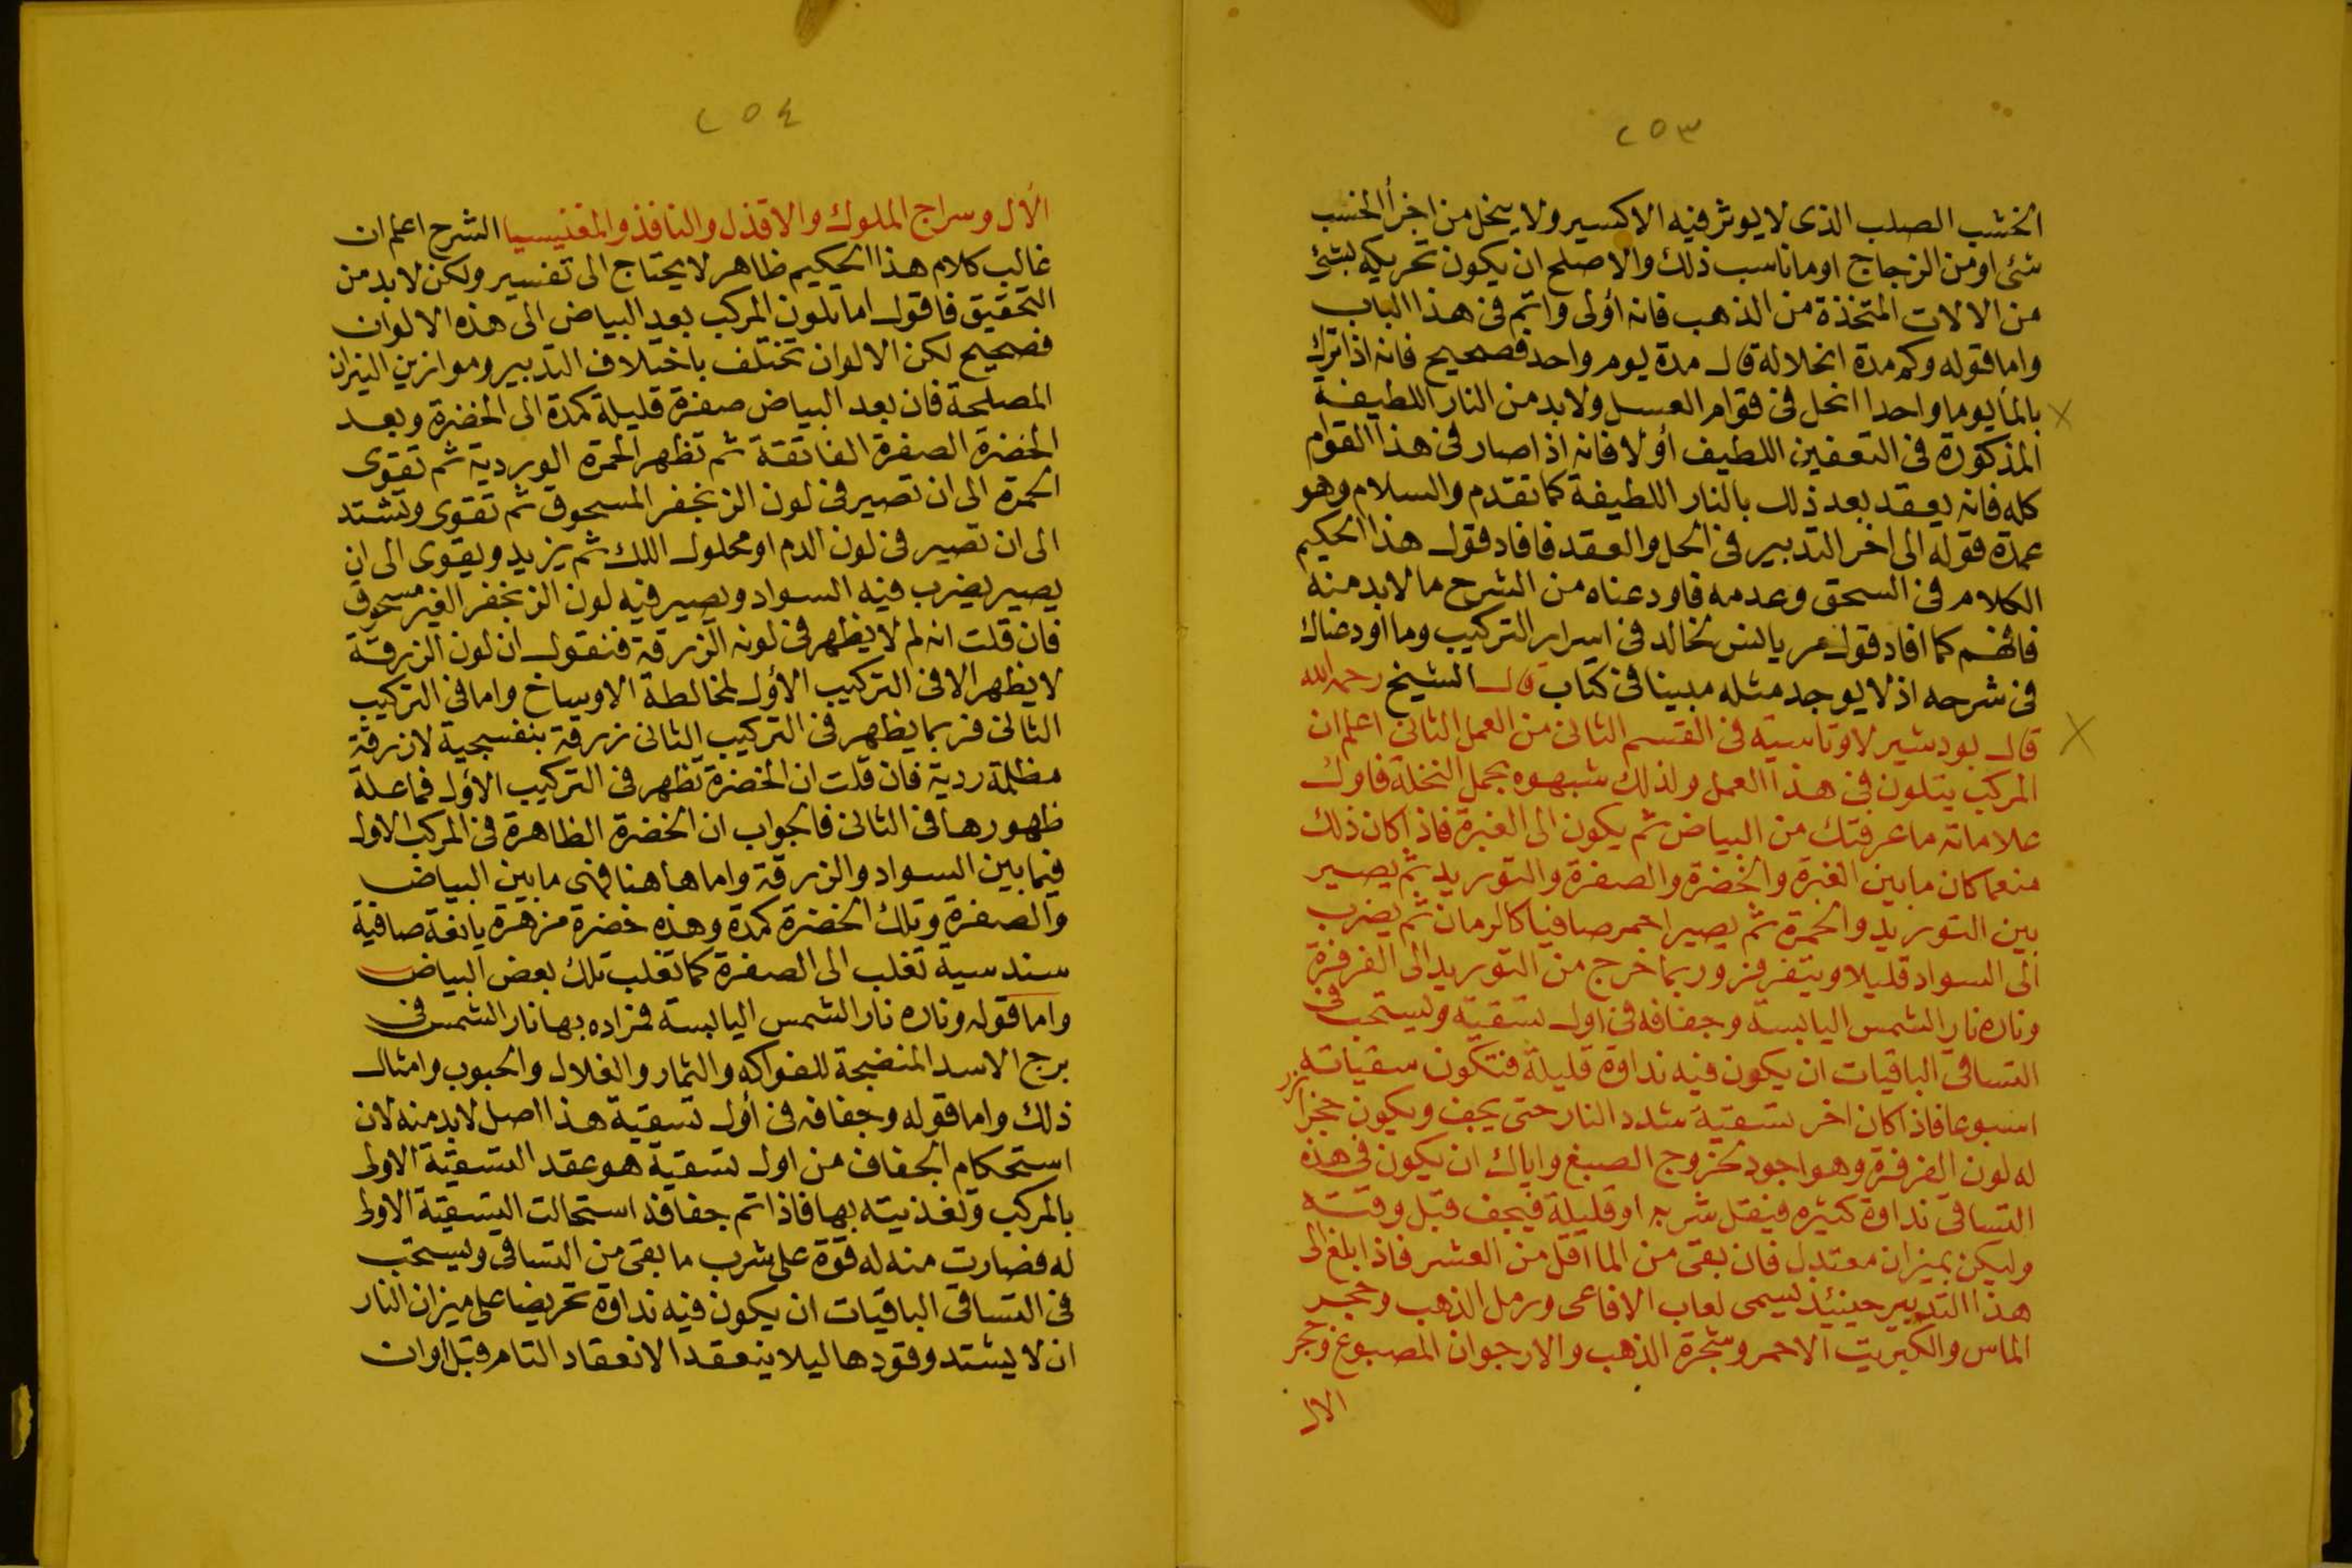 ٢٥٣
الخشب الصلب الذى لا يوثر فيه الاكسير ولا ينحل من اجزأ الخشب
شئ او من الزجاج او ما ناسب ذلك والاصلح ان يكون تحريكه بشئ
من الالات المتخذة من الذهب فانه اولى واتم فى هذا الباب
واما قوله وكم مدة انحلاله قال مدة يوم واحد فصحيح فانه اذا ترك
بالمأ يوما واحدا انحل فى قوام العسل ولا بد من النار اللطيفة
المذكورة فى التعفين اللطيف اولا فانه اذا صار فى هذا القوام
كله فانه يعقد بعد ذلك بالنار اللطيفة كما تقدم والسلام وهو
عمدة قوله الى اخر التدبير فى الحل والعقد فافاد قول هذا الحكيم
الكلام فى السحق وعدمه فاودعناه من الشرح ما لا بد منه
فافهم كما افاد قول مريانس لخالد فى اسرار التركيب وما اوضناك
فى شرحه اذ لا يوجد مثله مبينا فى كتاب قال الشيخ رحمه الله
قال بودشير لاوتاسية فى القسم الثانى من العمل الثانى اعلم ان
المركب يتلون فى هذا العمل ولذلك شبهوه بحمل النخلة فاول
علاماته ما عرفتك من البياض ثم يكون الى الغبرة فاذا كان ذلك
منعما كان ما بين الغبرة والخضرة والصفرة والتوريد ثم يصير
بين التوريد والحمرة ثم يصير احمر صافيا كالرمان ثم يضرب
الى السواد قليلا ويتفرفر وربما خرج من التوريد الى الفرفرة
وناره نار الشمس اليابسة وجفافه فى اول تسقية ويستحب فى
التساقى الباقيات ان يكون فيه نداوة قليلة فتكون سقياته
اسبوعا فاذا كان اخر تسقية شدد النار حتى يجف ويكون حجرا
له لون الفرفرة وهو اجود لخروج الصبغ واياك ان يكون فى هذه
التساقى نداوة كثيره فيقل شربه او قليلة فيجف قبل وقته
وليكن بميزان معتدل فان بقى من المأ اقل من العشر فاذا بلغ الى
هذا التدبير حينئذ يسمى لعاب الافاعى ورمل الذهب وحجر
الماس والكبريت الاحمر وشجرة الذهب والارجوان المصبوغ وحجر
الال
٢٥٤
الال وسراج الملوك والاقذل والنافذ والمغنيسيا الشرح اعلم ان
غالب كلام هذا الحكيم ظاهر لا يحتاج الى تفسير ولكن لا بد من
التحقيق فاقول اما تلون المركب بعد البياض الى هذه الالوان
فصحيح لكن الالوان تختلف باختلاف التدبير وموازين النيران
المصلحة فان بعد البياض صفرة قليلة كمدة الى الخضرة وبعد
الخضرة الصفرة الفاتقة ثم تظهر الحمرة الوردية ثم تقوى
الحمرة الى ان تصير فى لون الزنجفر المسحوق ثم تقوى وتشتد
الى ان تصير فى لون الدم او محلول اللك ثم يزيد ويقوى الى ان
يصير يضرب فيه السواد ويصير فيه لون الزنجفر الغير مسحوق
فان قلت انه لم لا يظهر فى لونه الزرقة فنقول ان لون الزرقة
لا يظهر الا فى التركيب الاول لمخالطة الاوساخ واما فى التركيب
الثانى فربما يظهر فى التركيب الثانى زرقة بنفسجية لا زرقة
مظلمة ردية فان قلت ان الخضرة تظهر فى التركيب الاول فما علة
ظهورها فى الثانى فالجواب ان الخضرة الظاهرة فى المركب الاول
فيما بين السواد والزرقة واما هاهنا فهى ما بين البياض
والصفرة وتلك الخضرة كمدة وهذه خضرة مزهرة يانعة صافية
سندسية تغلب الى الصفرة كما تغلب تلك بعض البياض
واما قوله وناره نار الشمس اليابسة فمراده بها نار الشمس فى
برج الاسد المنضجة للفواكه والثمار والغلال والحبوب وامثال
ذلك واما قوله وجفافه فى اول تسقية هذا اصل لا بد منه لان
استحكام الجفاف من اول تسقية هو عقد التسقية الاولى
بالمركب وتغذيته بها فاذا تم جفافه استحالت التسقية الاولى
له فصارت منه له قوة على شرب ما بقى من التساقى ويستحب
فى التساقى الباقيات ان يكون فيه نداوة تحريضا على ميزان النار
ان لا يشتد وقودها ليلا ينعقد الانعقاد التام قبل اوان